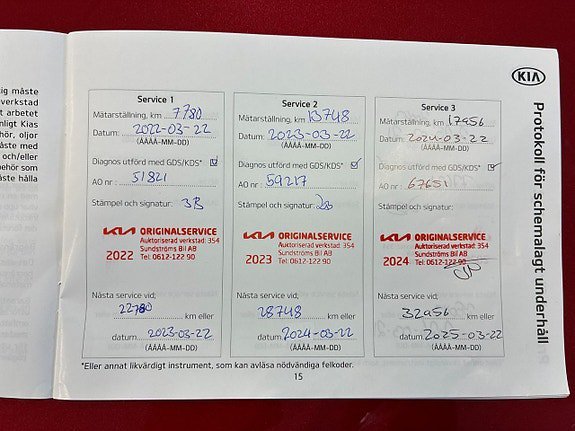 KIA
Protokoll för schemalagt underhåll
ig måste
verkstad
t arbetet
nligt Kias
hör, oljor
åste med
och/eller
behör som
måste hålla
Service 1
Mätarställning, km 7780
Datum: 2022-03-22
(ÅÅÅÅ-MM-DD)
Diagnos utförd med GDS/KDS*
AO nr: 51821
Stämpel och signatur: 3B
KIA ORIGINALSERVICE
Auktoriserad verkstad: 354
Sundströms Bil AB
2022 Tel: 0612-122 90
Nästa service vid;
22780 km eller
datum 2023-03-22
(ÅÅÅÅ-MM-DD)
Service 2
Mätarställning, km 13748
Datum: 2023-03-22
(ÅÅÅÅ-MM-DD)
Diagnos utförd med GDS/KDS*
AO nr: 59217
Stämpel och signatur:
KIA ORIGINALSERVICE
Auktoriserad verkstad: 354
Sundströms Bil AB
2023 Tel: 0612-122 90
Nästa service vid;
28748 km eller
datum 2024-03-22
(ÅÅÅÅ-MM-DD)
Service 3
Mätarställning, km 17956
Datum: 2024-03-22
(ÅÅÅÅ-MM-DD)
Diagnos utförd med GDS/KDS*
AO nr: 67651
Stämpel och signatur:
KIA ORIGINALSERVICE
Auktoriserad verkstad: 354
Sundströms Bil AB
2024 Tel: 0612-122 90
Nästa service vid;
32956 km eller
datum 2025-03-22
(ÅÅÅÅ-MM-DD)
*Eller annat likvärdigt instrument, som kan avläsa nödvändiga felkoder.
15